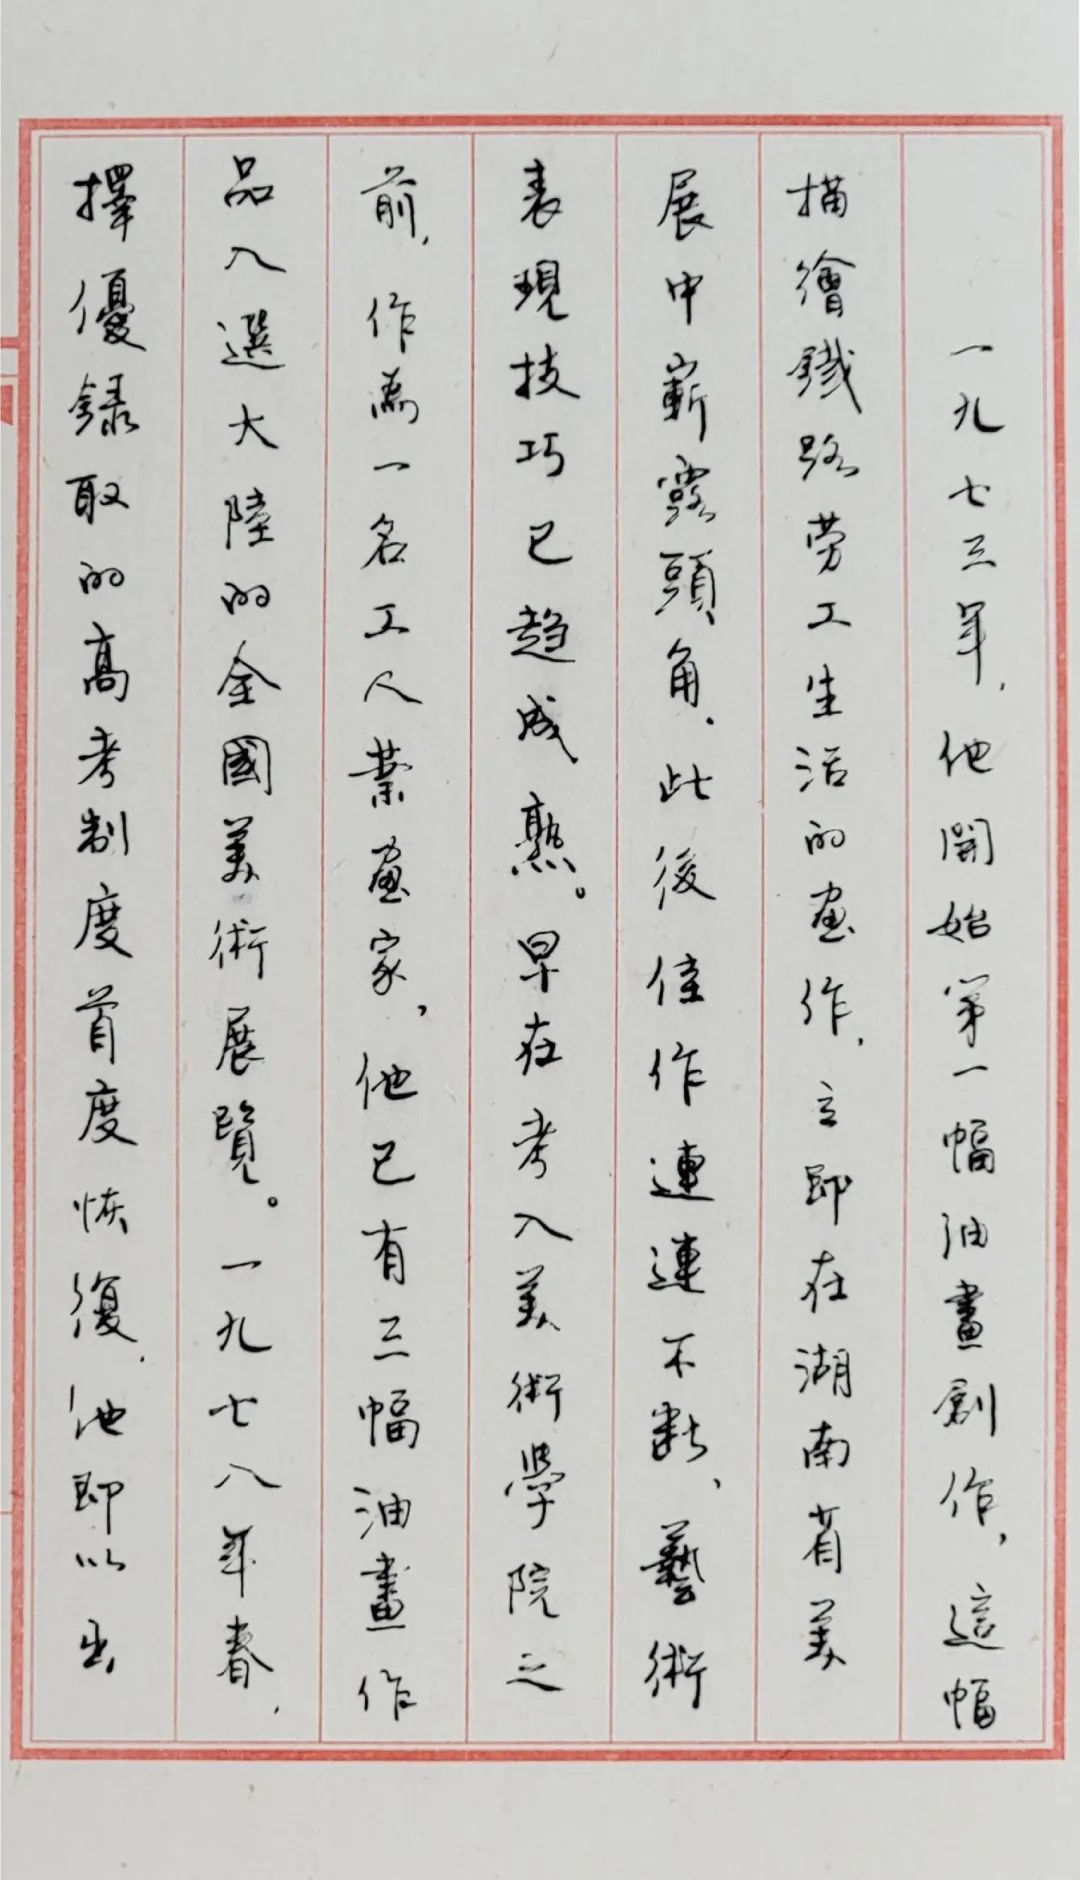 一九七三年，他開始第一幅油畫創作，這幅
描繪鐵路劳工生活的畫作，立即在湖南省美
展中嶄露頭角，此後佳作連連不断、藝術
表現技巧已趋成熟。早在考入美術學院之
前，作為一名工人業畫家，他已有三幅油畫作
品入選大陸的全國美術展覽。一九七八年春，
擇優録取的高考制度首度恢復，他即以出